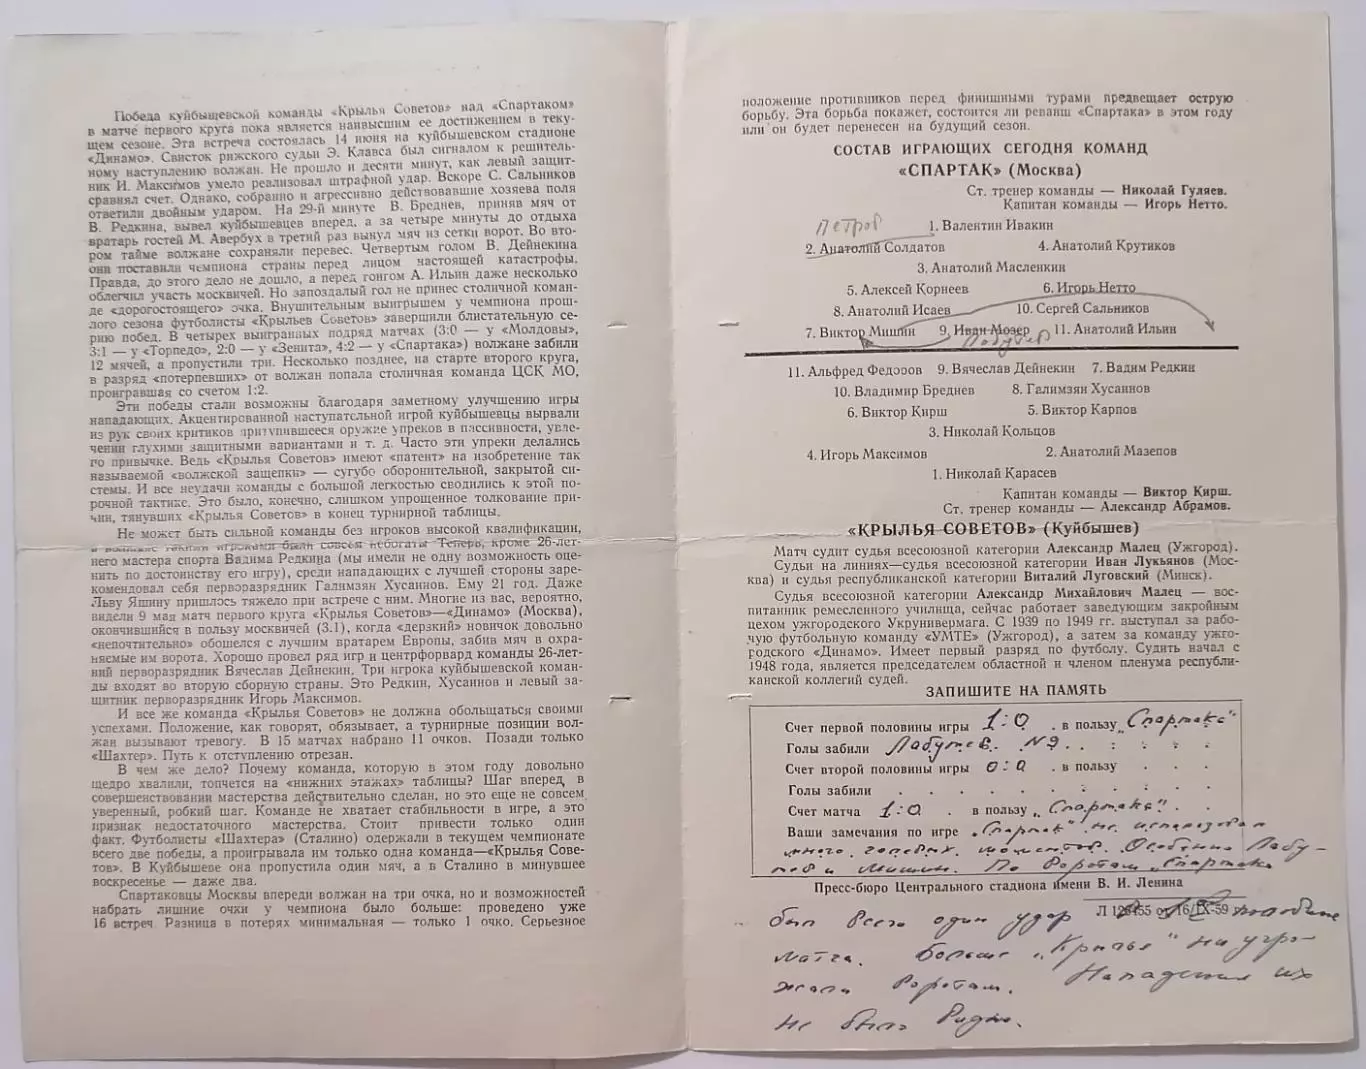 Победа куйбышевской команды «Крылья Советов» над «Спартаком»
в матче первого круга пока является наивысшим ее достижением в теку-
щем сезоне. Эта встреча состоялась 14 июня на куйбышевском стадионе
«Динамо». Свисток рижского судьи Э. Клавса был сигналом к решитель-
ному наступлению волжан. Не прошло и десяти минут, как левый защит-
ник И. Максимов умело реализовал штрафной удар. Вскоре С. Сальников
сравнял счет. Однако, собранно и агрессивно действовавшие хозяева поля
ответили двойным ударом. На 29-й минуте В. Бреднев, приняв мяч от
В. Редкина, вывел куйбышевцев вперед, а за четыре минуты до отдыха
вратарь гостей М. Авербух в третий раз вынул мяч из сетки ворот. Во вто-
ром тайме волжане сохраняли перевес. Четвертым голом В. Дейнекина
они поставили чемпиона страны перед лицом настоящей катастрофы.
Правда, до этого дело не дошло, а перед гонгом А. Ильин даже несколько
облегчил участь москвичей. Но запоздалый гол не принес столичной коман-
де «дорогостоящего» очка. Внушительным выигрышем у чемпиона прош-
лого сезона футболисты «Крыльев Советов» завершили блистательную се-
рию побед. В четырех выигранных подряд матчах (3:0 — у «Молдовы»,
3:1 — у «Торпедо», 2:0 — у «Зенита», 4:2 — у «Спартака») волжане забили
12 мячей, а пропустили три. Несколько позднее, на старте второго круга,
в разряд «потерпевших» от волжан попала столичная команда ЦСК МО,
проигравшая со счетом 1:2.
Эти победы стали возможны благодаря заметному улучшению игры
нападающих. Акцентированной наступательной игрой куйбышевцы вырвали
из рук своих критиков притупившееся оружие упреков в пассивности, увле-
чении глухими защитными вариантами и т. д. Часто эти упреки делались
по привычке. Ведь «Крылья Советов» имеют «патент» на изобретение так
называемой «волжской защепки» — сугубо оборонительной, закрытой си-
стемы. И все неудачи команды с большой легкостью сводились к этой по-
рочной тактике. Это было, конечно, слишком упрощенное толкование при-
чин, тянувших «Крылья Советов» в конец турнирной таблицы.
Не может быть сильной команды без игроков высокой квалификации,
а волжане такими игроками были совсем небогаты Теперь, кроме 26-лет-
него мастера спорта Вадима Редкина (мы имели не одну возможность оце-
нить по достоинству его игру), среди нападающих с лучшей стороны заре-
комендовал себя перворазрядник Галимзян Хусаинов. Ему 21 год. Даже
Льву Яшину пришлось тяжело при встрече с ним. Многие из вас, вероятно,
видели 9 мая матч первого круга «Крылья Советов»—«Динамо» (Москва),
окончившийся в пользу москвичей (3.1), когда «дерзкий» новичок довольно
«непочтительно» обошелся с лучшим вратарем Европы, забив мяч в охра-
няемые им ворота. Хорошо провел ряд игр и центрфорвард команды 26-лет-
ний перворазрядник Вячеслав Дейнекин. Три игрока куйбышевской коман-
ды входят во вторую сборную страны. Это Редкин, Хусаинов и левый за-
щитник перворазрядник Игорь Максимов.
И все же команда «Крылья Советов» не должна обольщаться своими
успехами. Положение, как говорят, обязывает, а турнирные позиции вол-
жан вызывают тревогу. В 15 матчах набрано 11 очков. Позади только
«Шахтер». Путь к отступлению отрезан.
В чем же дело? Почему команда, которую в этом году довольно
щедро хвалили, топчется на «нижних этажах» таблицы? Шаг вперед в
совершенствовании мастерства действительно сделан, но это еще не совсем
уверенный, робкий шаг. Команде не хватает стабильности в игре, а это
признак недостаточного мастерства. Стоит привести только один
факт. Футболисты «Шахтера» (Сталино) одержали в текущем чемпионате
всего две победы, а проигрывала им только одна команда—«Крылья Сове-
тов». В Куйбышеве она пропустила один мяч, а в Сталино в минувшее
воскресенье — даже два.
Спартаковцы Москвы впереди волжан на три очка, но и возможностей
набрать лишние очки у чемпиона было больше: проведено уже
16 встреч. Разница в потерях минимальная — только 1 очко. Серьезное
положение противников перед финишными турами предвещает острую
борьбу. Эта борьба покажет, состоится ли реванш «Спартака» в этом году
или он будет перенесен на будущий сезон.
СОСТАВ ИГРАЮЩИХ СЕГОДНЯ КОМАНД
«СПАРТАК» (Москва)
Ст. тренер команды — Николай Гуляев.
Капитан команды — Игорь Нетто.
Петров
1. Валентин Ивакин
2. Анатолий Солдатов 4. Анатолий Крутиков
3. Анатолий Масленкин
5. Алексей Корнеев 6. Игорь Нетто
8. Анатолий Исаев 10. Сергей Сальников
7. Виктор Мишин 9. Иван Мозер 11. Анатолий Ильин
Лабутев
11. Альфред Федоров 9. Вячеслав Дейнекин 7. Вадим Редкин
10. Владимир Бреднев 8. Галимзян Хусаинов
6. Виктор Кирш 5. Виктор Карпов
3. Николай Кольцов
4. Игорь Максимов 2. Анатолий Мазепов
1. Николай Карасев
Капитан команды — Виктор Кирш.
Ст. тренер команды — Александр Абрамов.
«КРЫЛЬЯ СОВЕТОВ» (Куйбышев)
Матч судит судья всесоюзной категории Александр Малец (Ужгород).
Судьи на линиях—судья всесоюзной категории Иван Лукьянов (Мос-
ква) и судья республиканской категории Виталий Луговский (Минск).
Судья всесоюзной категории Александр Михайлович Малец — вос-
питанник ремесленного училища, сейчас работает заведующим закройным
цехом ужгородского Укрунивермага. С 1939 по 1949 гг. выступал за рабо-
чую футбольную команду «УМТЕ» (Ужгород), а затем за команду ужго-
родского «Динамо». Имеет первый разряд по футболу. Судить начал с
1948 года, является председателем областной и членом пленума республи-
канской коллегий судей.
ЗАПИШИТЕ НА ПАМЯТЬ
Счет первой половины игры 1:0 . в пользу „Спартака"
Голы забили Лабутев. №9
Счет второй половины игры 0:0 . в пользу
Голы забили
Счет матча 1:0 . в пользу „Спартака".
Ваши замечания по игре „Спартак" не использовал
много голевых моментов. Особенно Лабу-
тев и Мишин. По воротам „Спартака
Пресс-бюро Центрального стадиона имени В. И. Ленина
Л 126455 от 16/IX-59
был всего один удар
матча. Больше „Крылья" не угро-
жали воротам. Нападения их
не было видно.